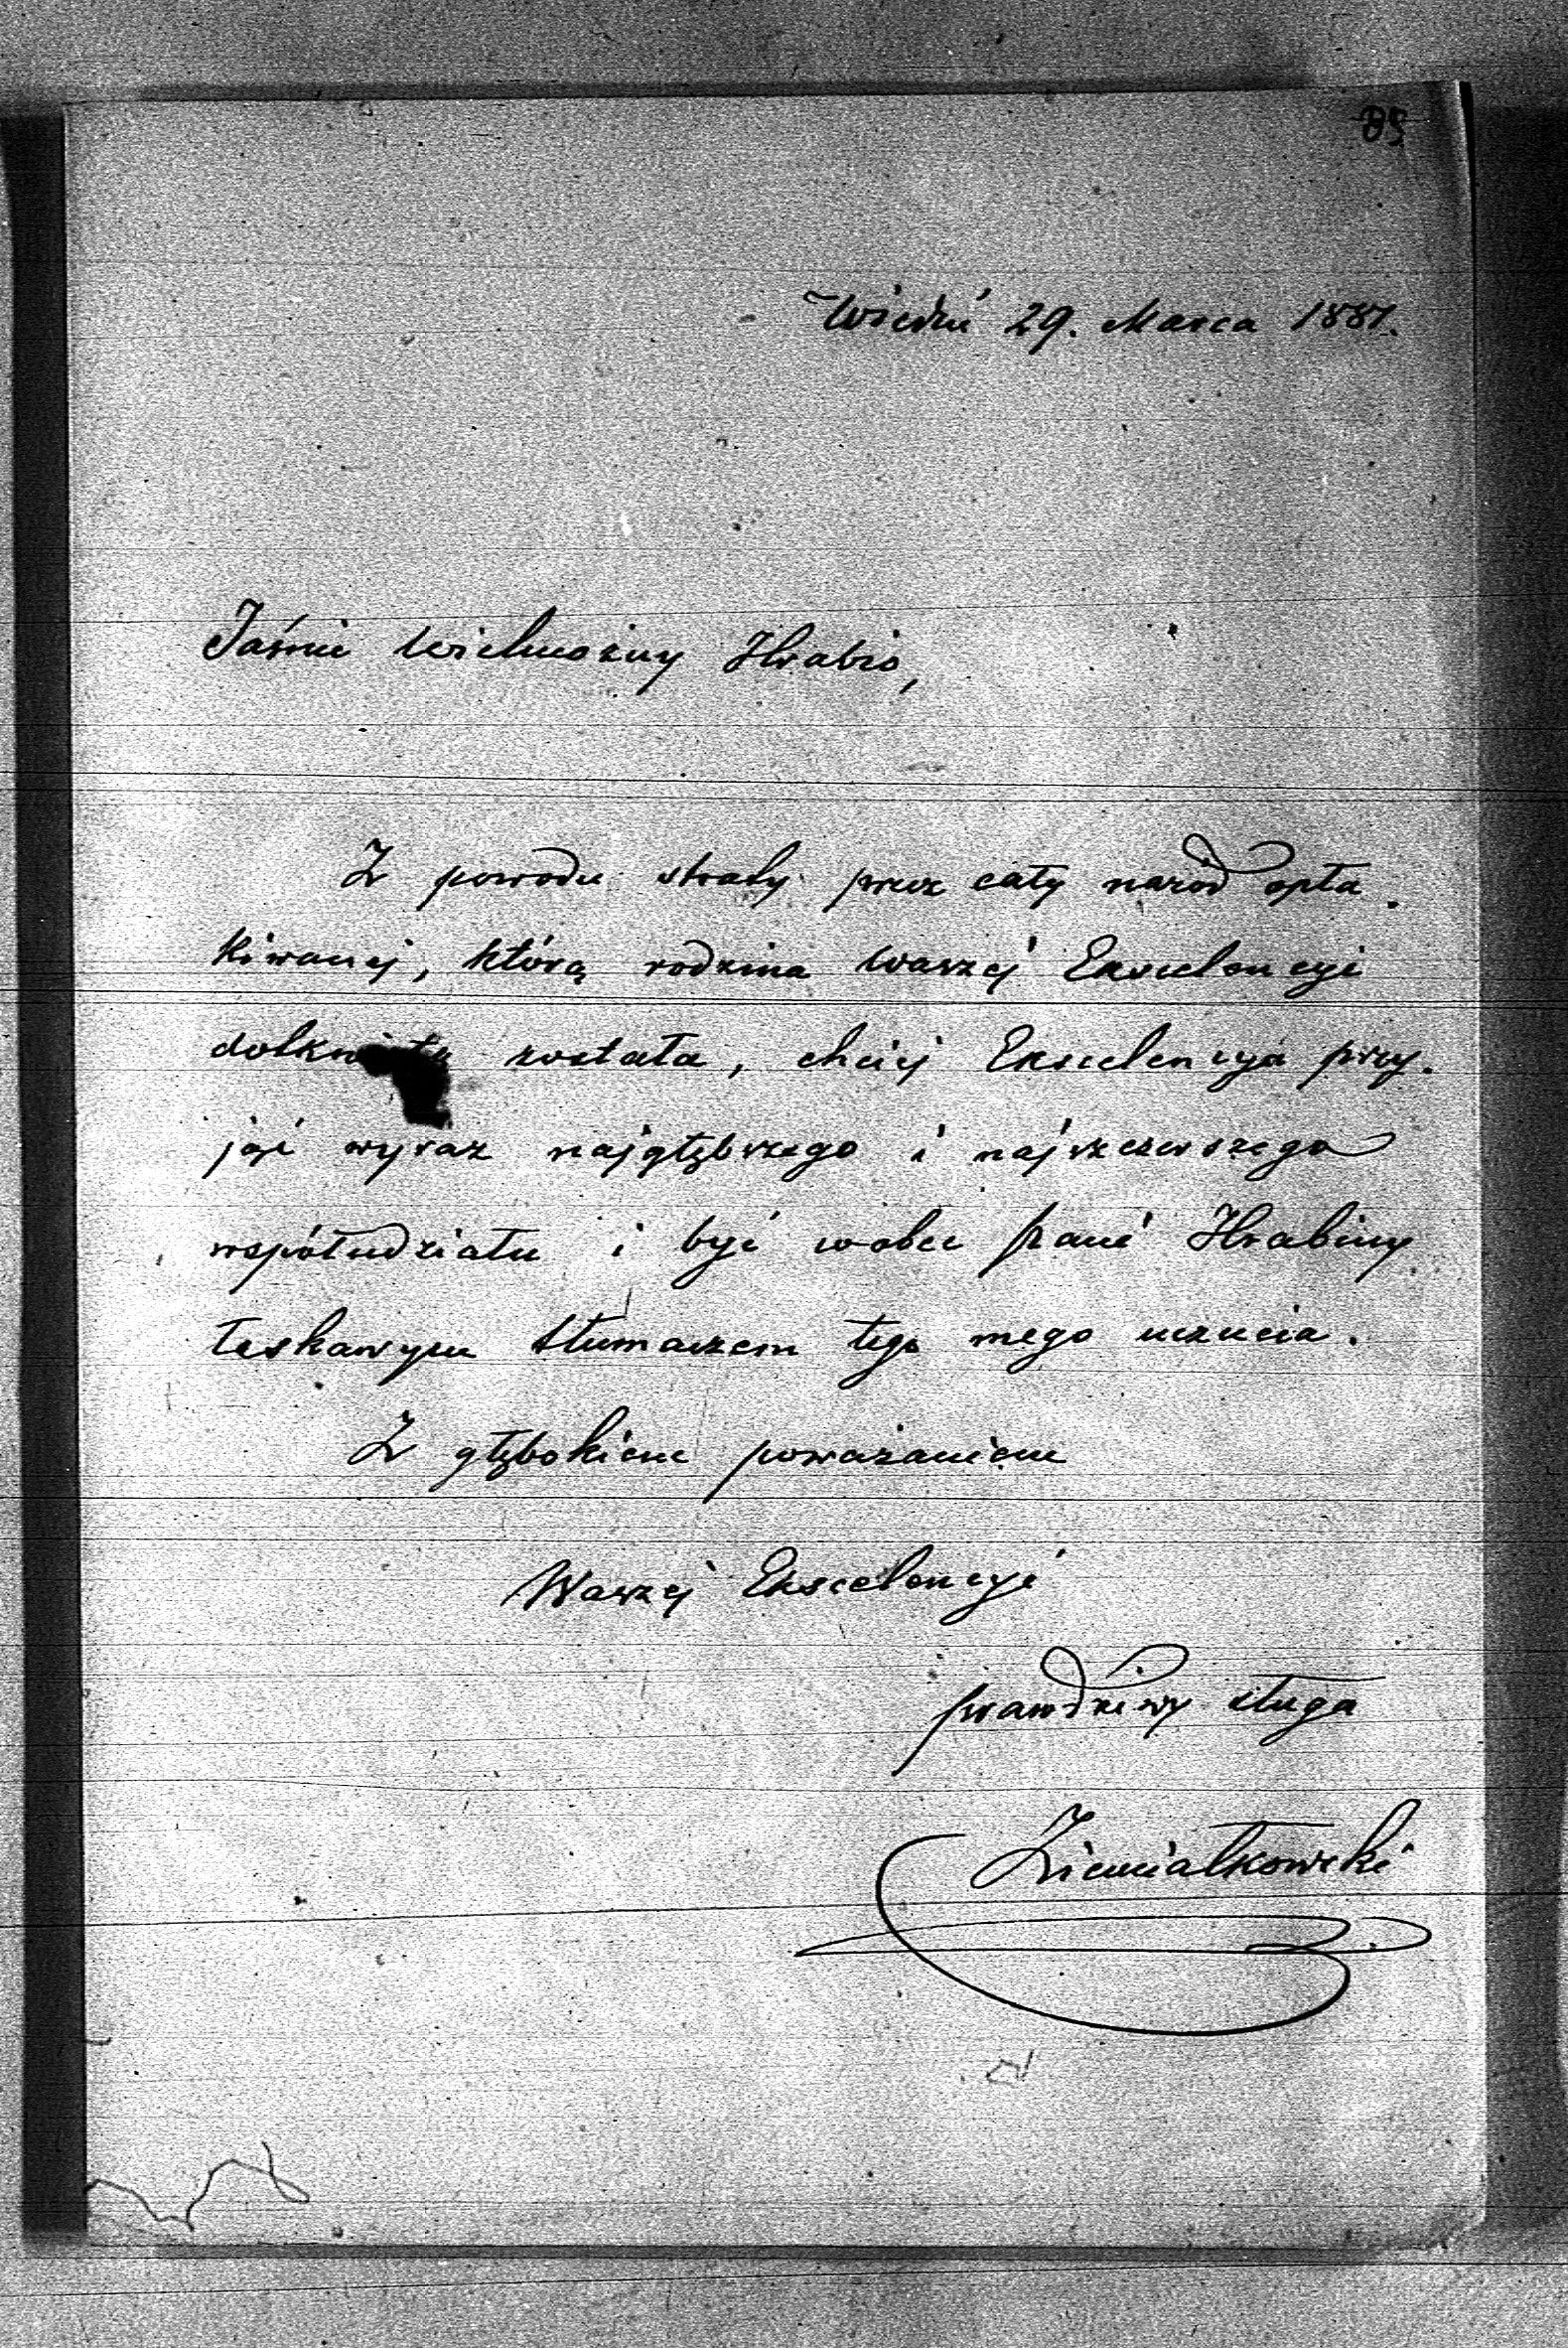 85
Wiedeń 29. Marca 1887.
Jaśnie Wielmożny Hrabio,
Z powodu straty przez cały naród opła-
kiwanej, którą rodzina Waszej Ekscelencyi
dotknięta została, chciej Ekscelencya przy-
jąć wyraz najgłębszego i najszczerszego
współudziału i być wobec pani Hrabiny
łaskawym tłumaczem tego mego uczucia.
Z głębokiem poważaniem
Waszej Ekscelencyi
prawdziwy sługa
Ziemiałkowski